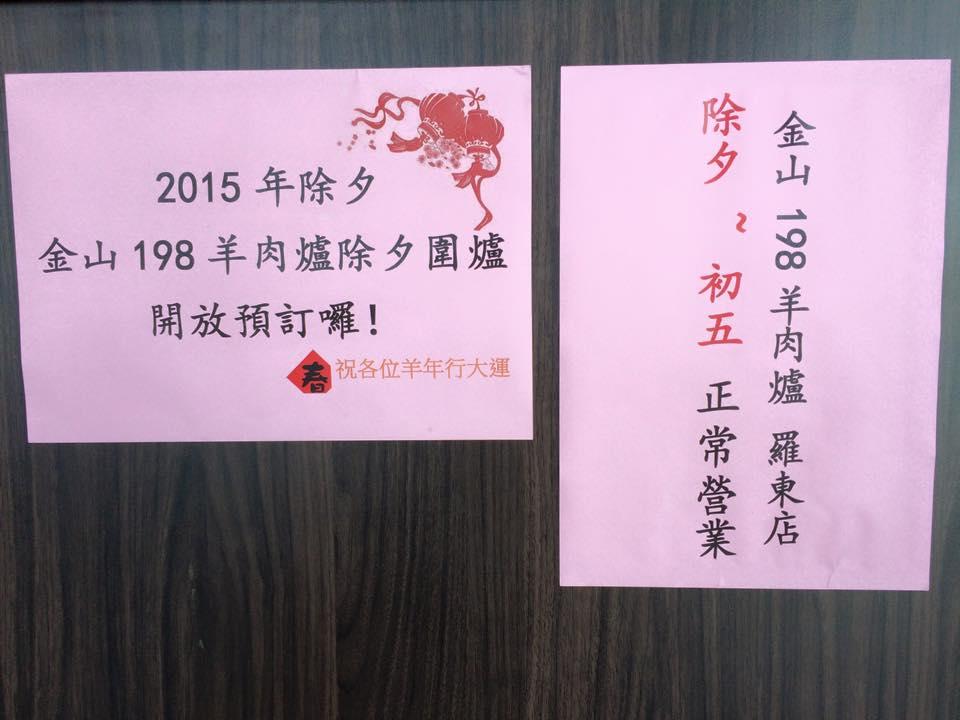 2015年除夕
金山198羊肉爐除夕圍爐
開放預訂囉!
春
祝各位羊年行大運
金山198羊肉爐 羅東店
除夕~初五 正常營業